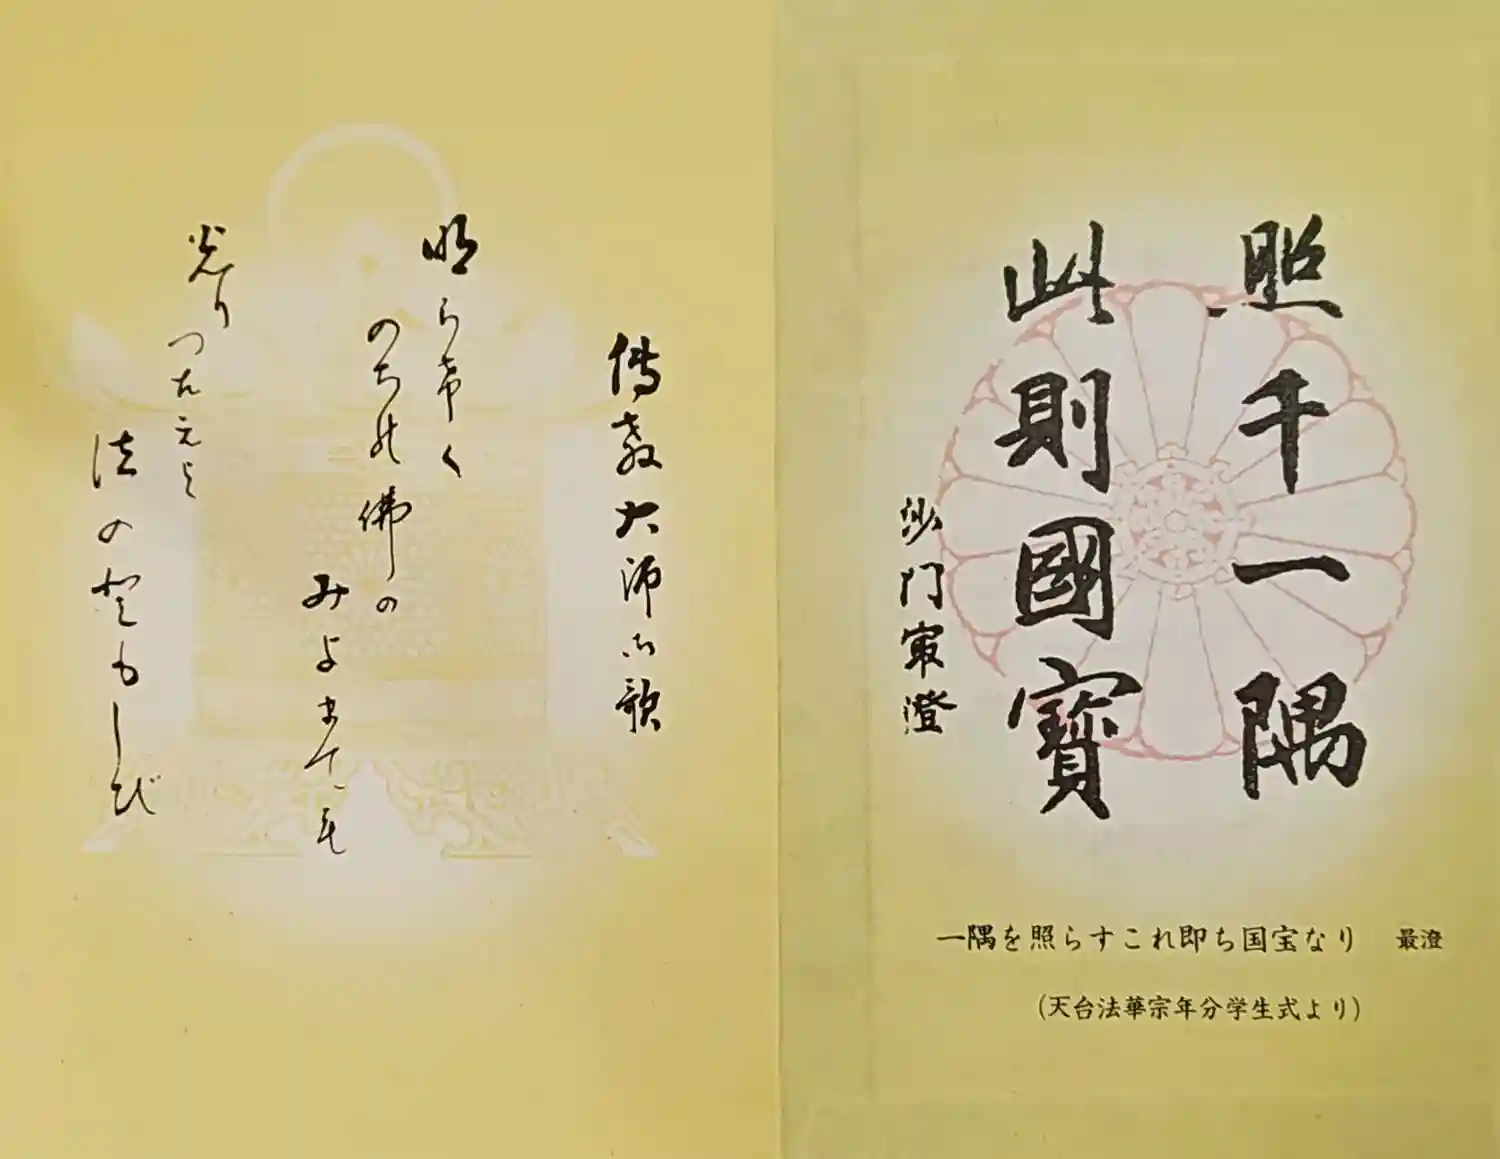 照千一隅
此則國寶
沙門㝡澄
一隅を照らすこれ即ち国宝なり 最澄
(天台法華宗年分学生式より)
傳教大師御歌
明らけく
のちの佛の
みよまでも
光りつたえよ
法のともしび